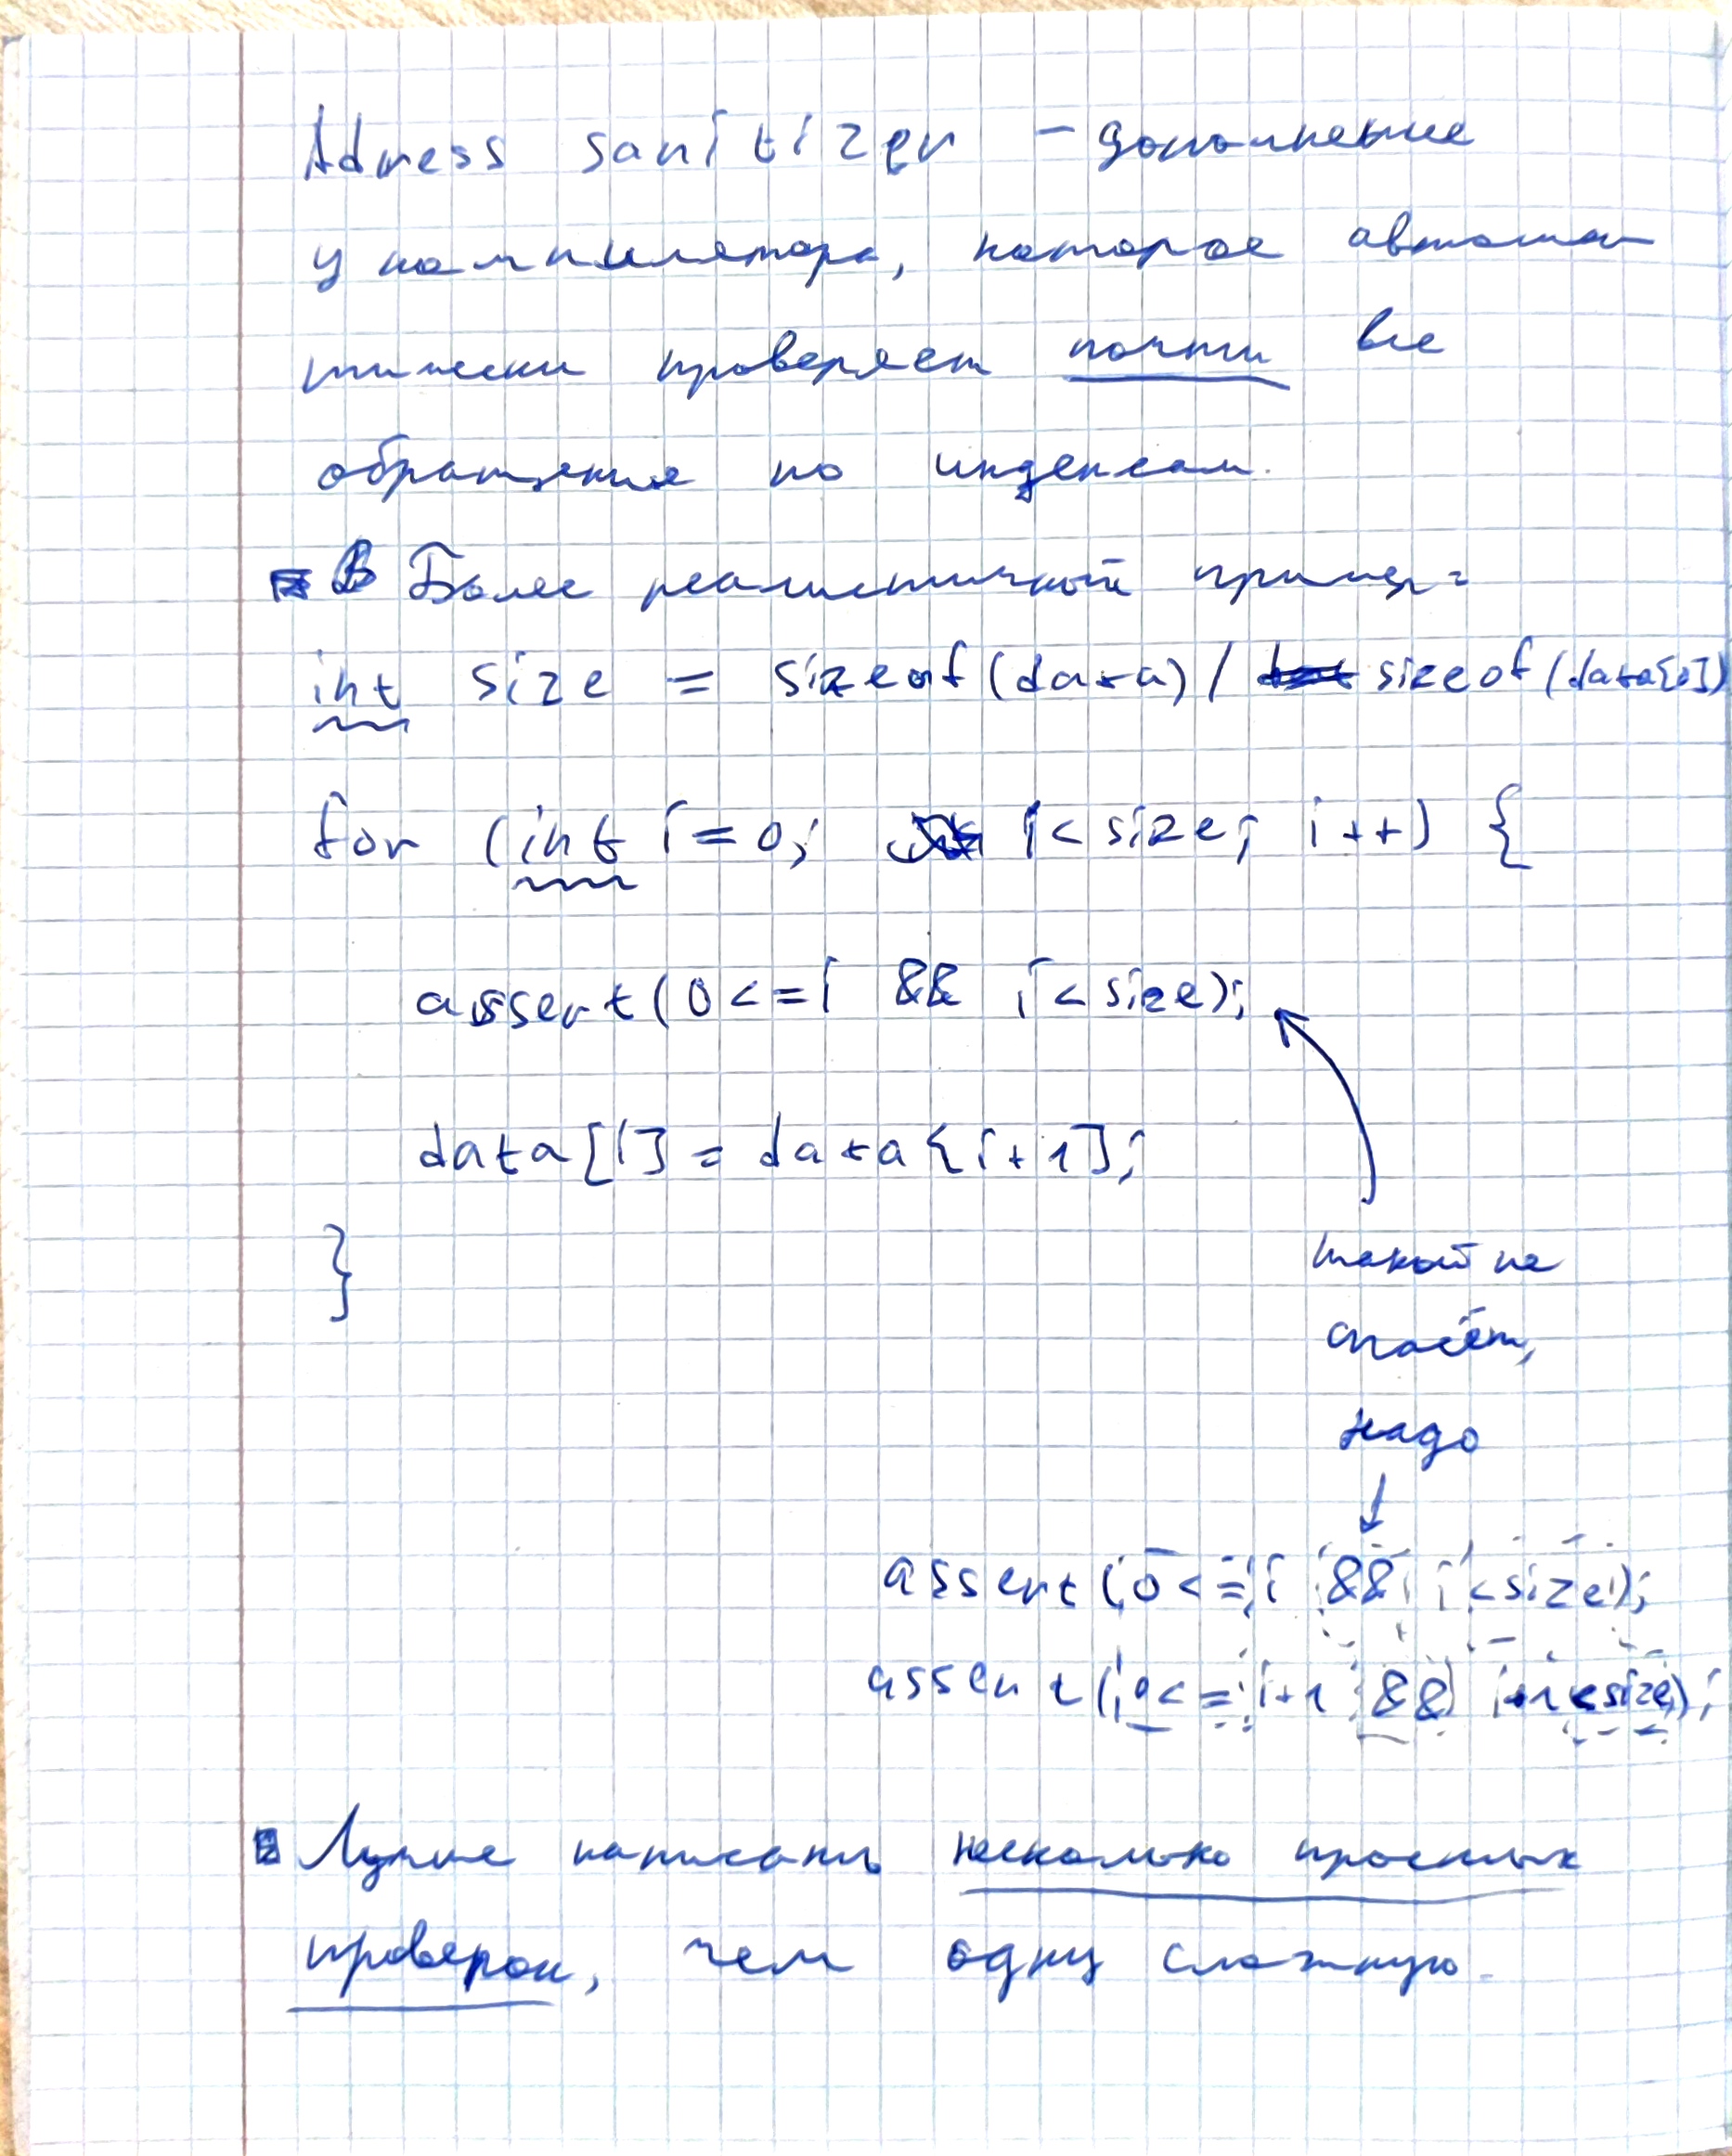 Adress sanitizer – дополнение
у компилятора, которое автома
тически проверяет почти все
обращения по индексам.
Более реалистичный пример:
int size = sizeof(data) / sizeof(data[0])
for (int i=0; i < size; i++) {
assert(0<=i && i<size);
data[i] = data[i+1];
}
такой не
спасёт,
надо
assert(0<=i && i<size);
assert(0<=i+1 && i+1<size);
Лучше написать несколько простых
проверок, чем одну сложную.